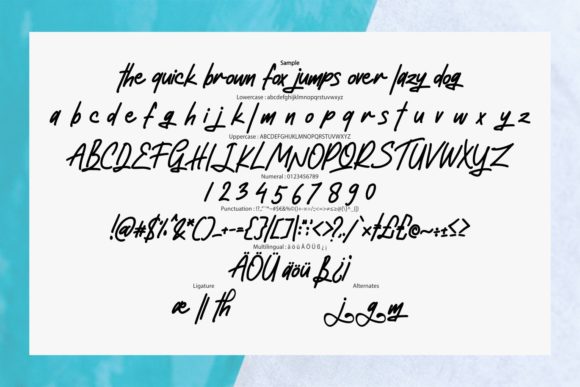 Sample
the quick brown fox jumps over lazy dog
Lowercase : abcdefghijklmnopqrstuvwxyz
a b c d e f g h i j k l m n o p q r s t u v w x y z
Uppercase : ABCDEFGHIJKLMNOPQRSTUVWXYZ
ABCDEFGHIJKLMNOPQRSTUVWXYZ
Numeral : 0123456789
1 2 3 4 5 6 7 8 9 0
Multilingual : ä ö ü Ä Ö Ü ß ¿ ¡
ÄÖÜ äöü ß¿¡
Ligature
Alternates
æ ll th
j g m